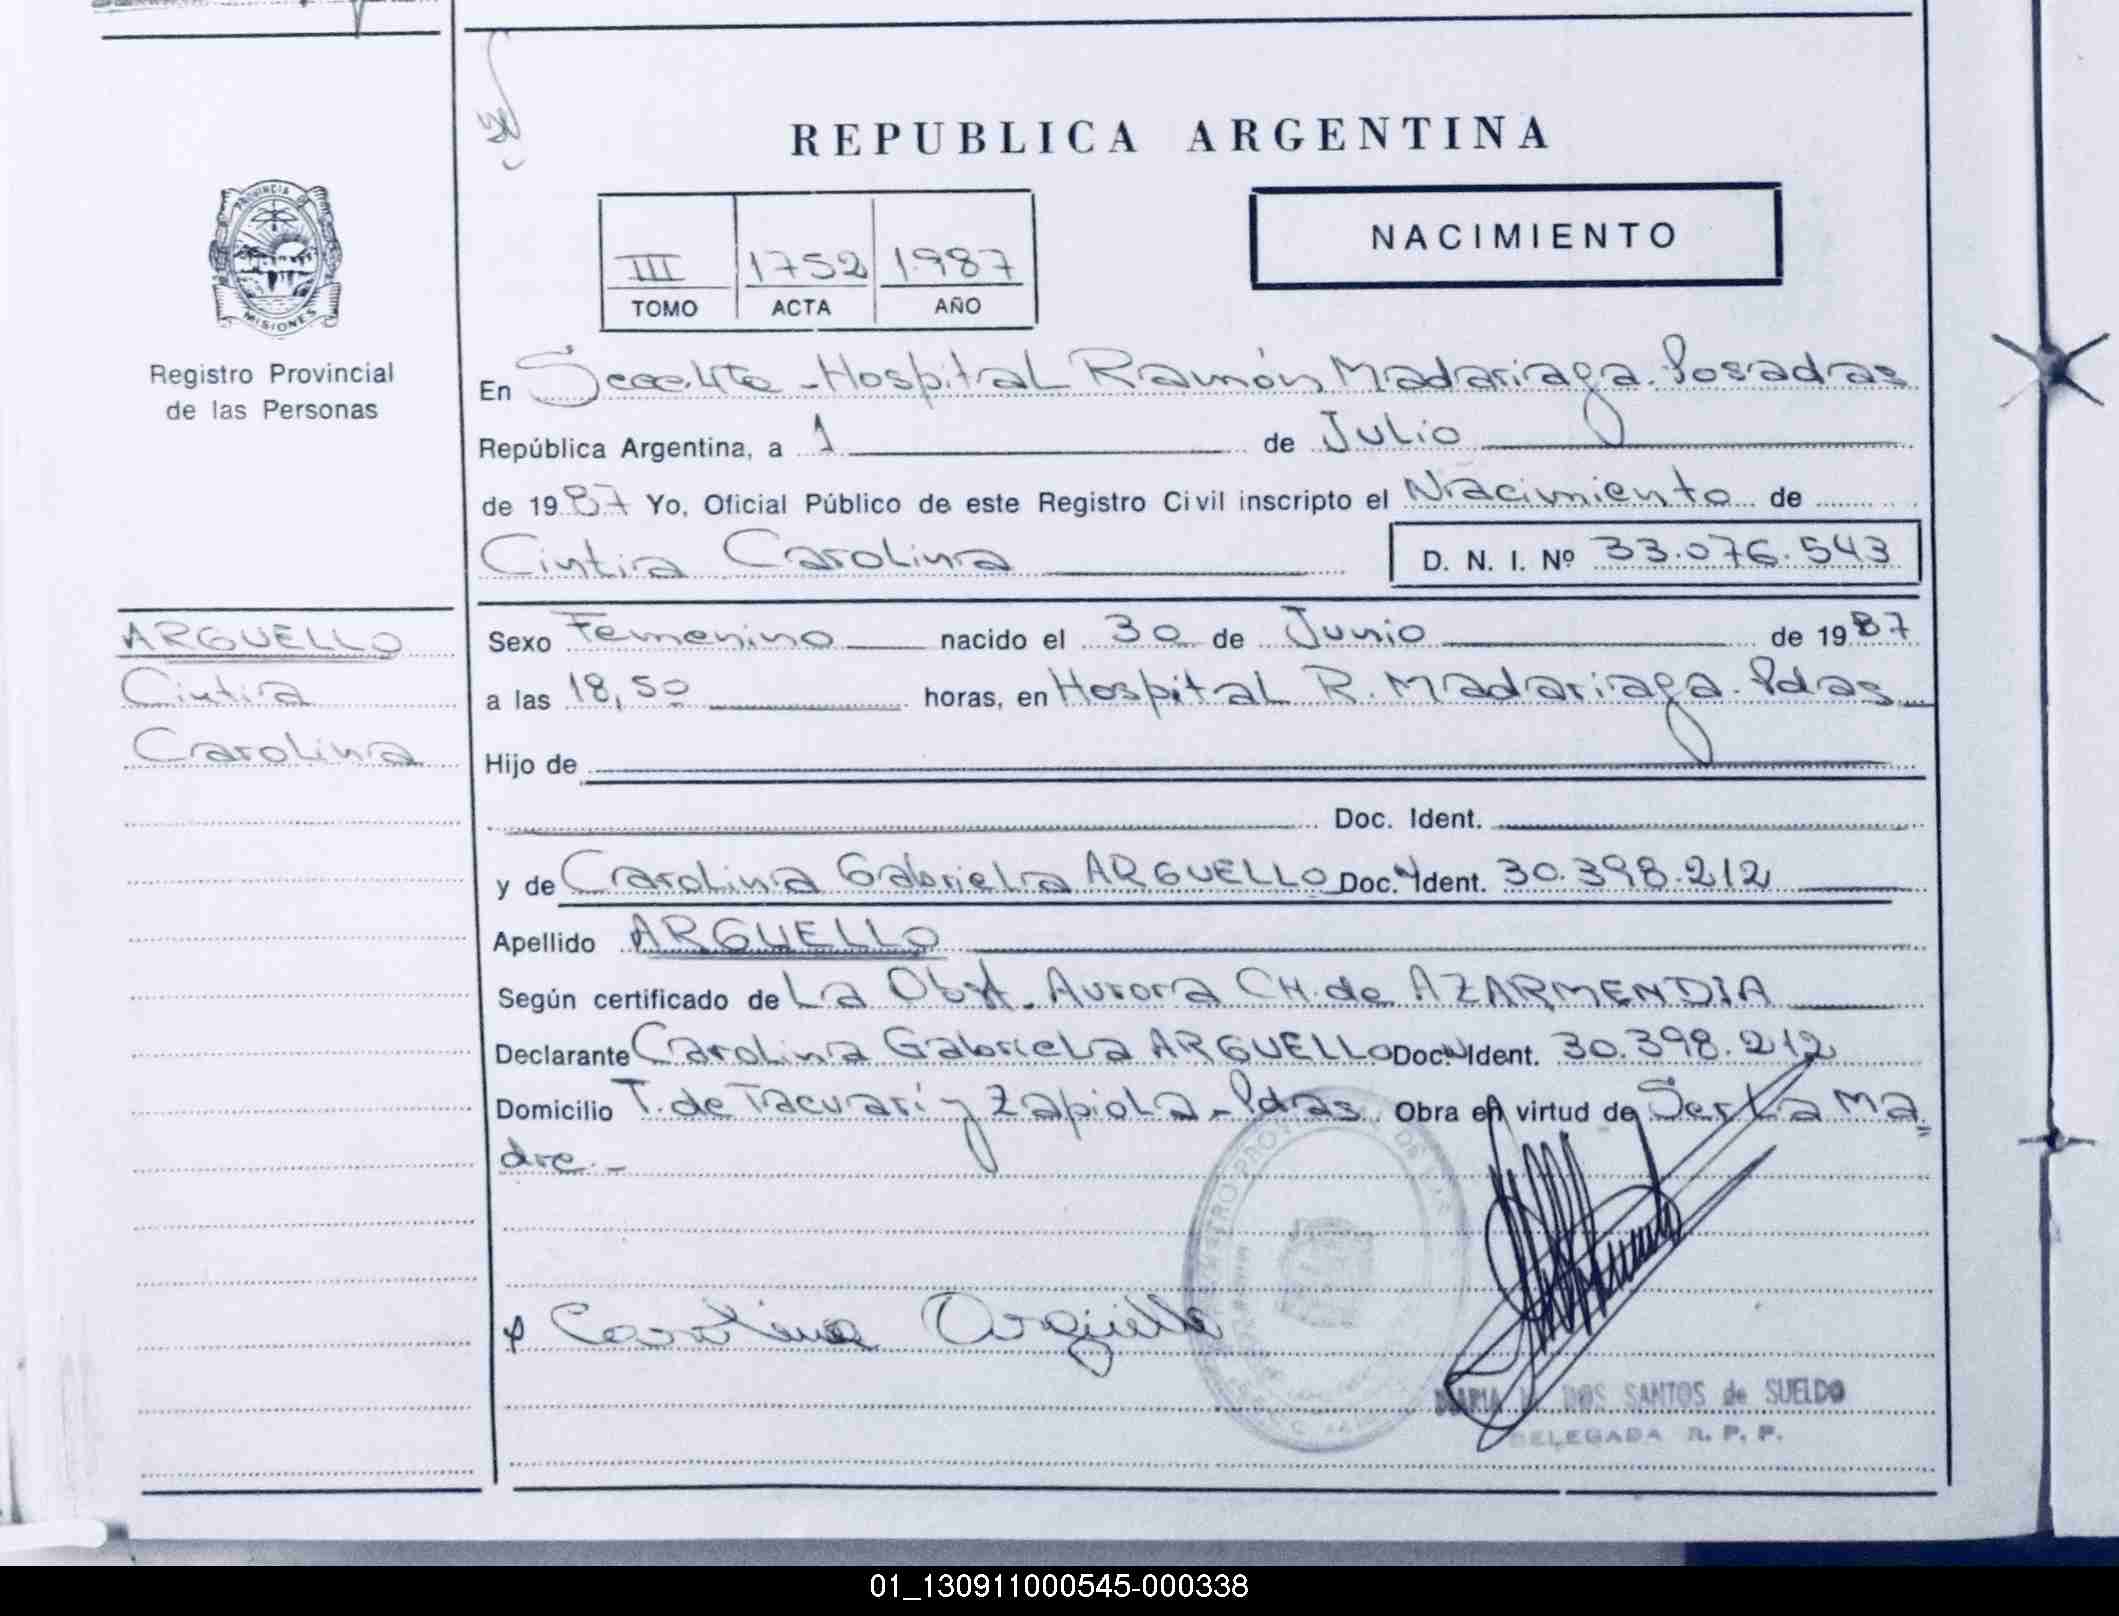 REPUBLICA ARGENTINA
NACIMIENTO
III 1752 1987
TOMO ACTA AÑO
PROVINCIA
MISIONES
Registro Provincial
de las Personas
En Hospital Ramón Madariaga. Posadas
República Argentina, a 1 de Julio
de 1987 Yo, Oficial Público de este Registro Civil inscripto el Nacimiento de
Cintia Carolina D. N. I. Nº 33.076.543
ARGUELLO
Cintia
Carolina
Sexo Femenino nacido el 30 de Junio de 1987
a las 18,50 horas, en Hospital R. Madariaga. Pdas
Hijo de
Doc. Ident.
y de Carolina Gabriela ARGUELLO Doc. Ident. 30.398.212
Apellido ARGUELLO
Según certificado de La Obst. Aurora CH. de AZARMENDIA
Declarante Carolina Gabriela ARGUELLO Doc. Ident. 30.398.212
Domicilio T. de Tacuarí y Zapiola - Pdas Obra en virtud de Ser La Ma
dre.-
Carolina Argüello
MARIA DOS SANTOS de SUELDO
DELEGADA R. P. P.
01_130911000545-000338